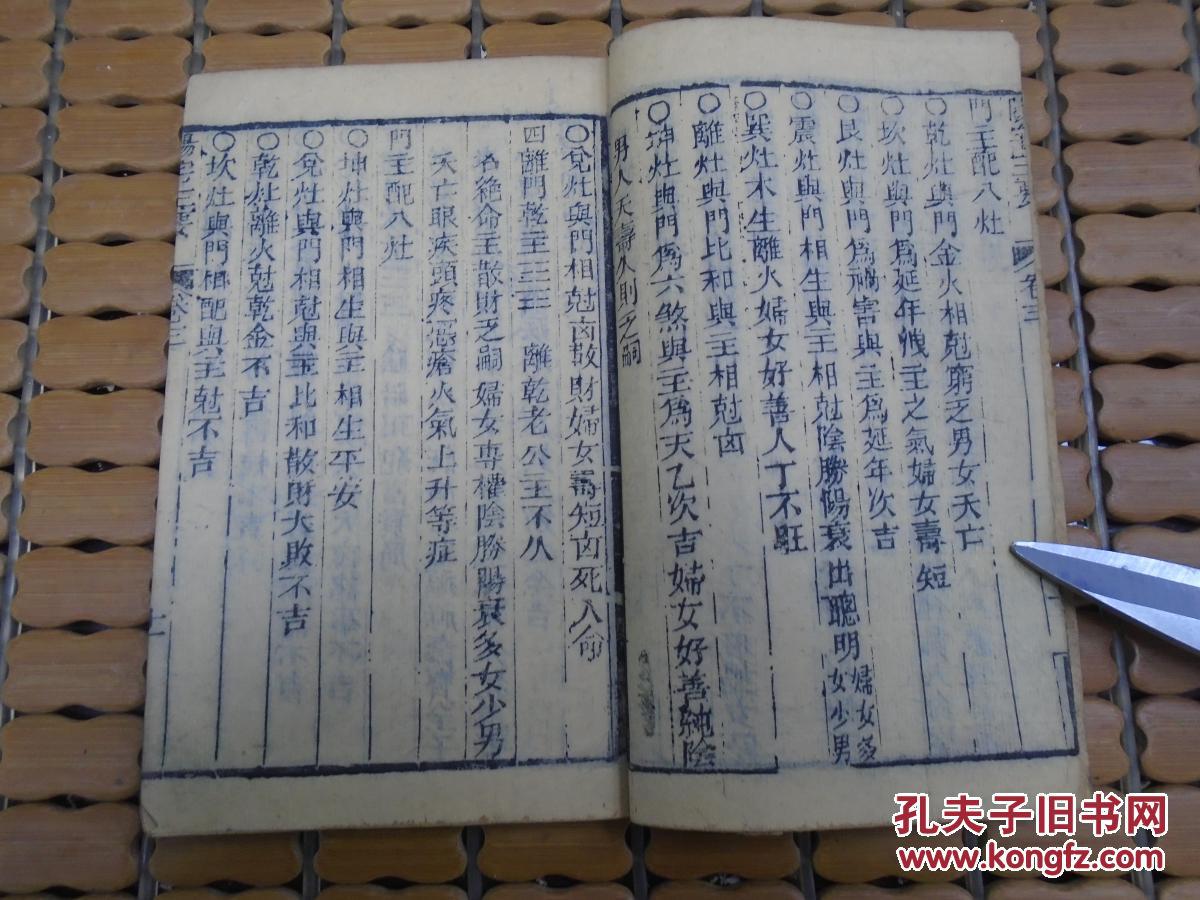 陽宅三要 卷三
門主配八灶
○乾灶與門金火相尅窮乏男女夭亡
○坎灶與門爲延年洩主之氣婦女壽短
○艮灶與門爲禍害與主爲延年次吉
○震灶與門相生與主相尅陰勝陽衰出聰明婦女多女少男
○巽灶木生離火婦女好善人丁不旺
○離灶與門比和與主相尅卤
○坤灶與門爲六煞與主爲天乙次吉婦女好善純陰
男人夭壽久則乏嗣
○兌灶與門相尅卤敗財婦女壽短卤死人命
四離門乾主三三 離乾老公主不久
名絶命主散財乏嗣婦女專權陰勝陽衰多女少男
夭亡眼疾頭疼惡瘡火氣上升等症
門主配八灶
○坤灶與門相生與主相生平安
○兌灶與門相尅與主比和散財大敗不吉
○乾灶離火尅乾金不吉
○坎灶與門相配與主尅不吉
陽宅三要 卷三
孔夫子旧书网
www.kongfz.com